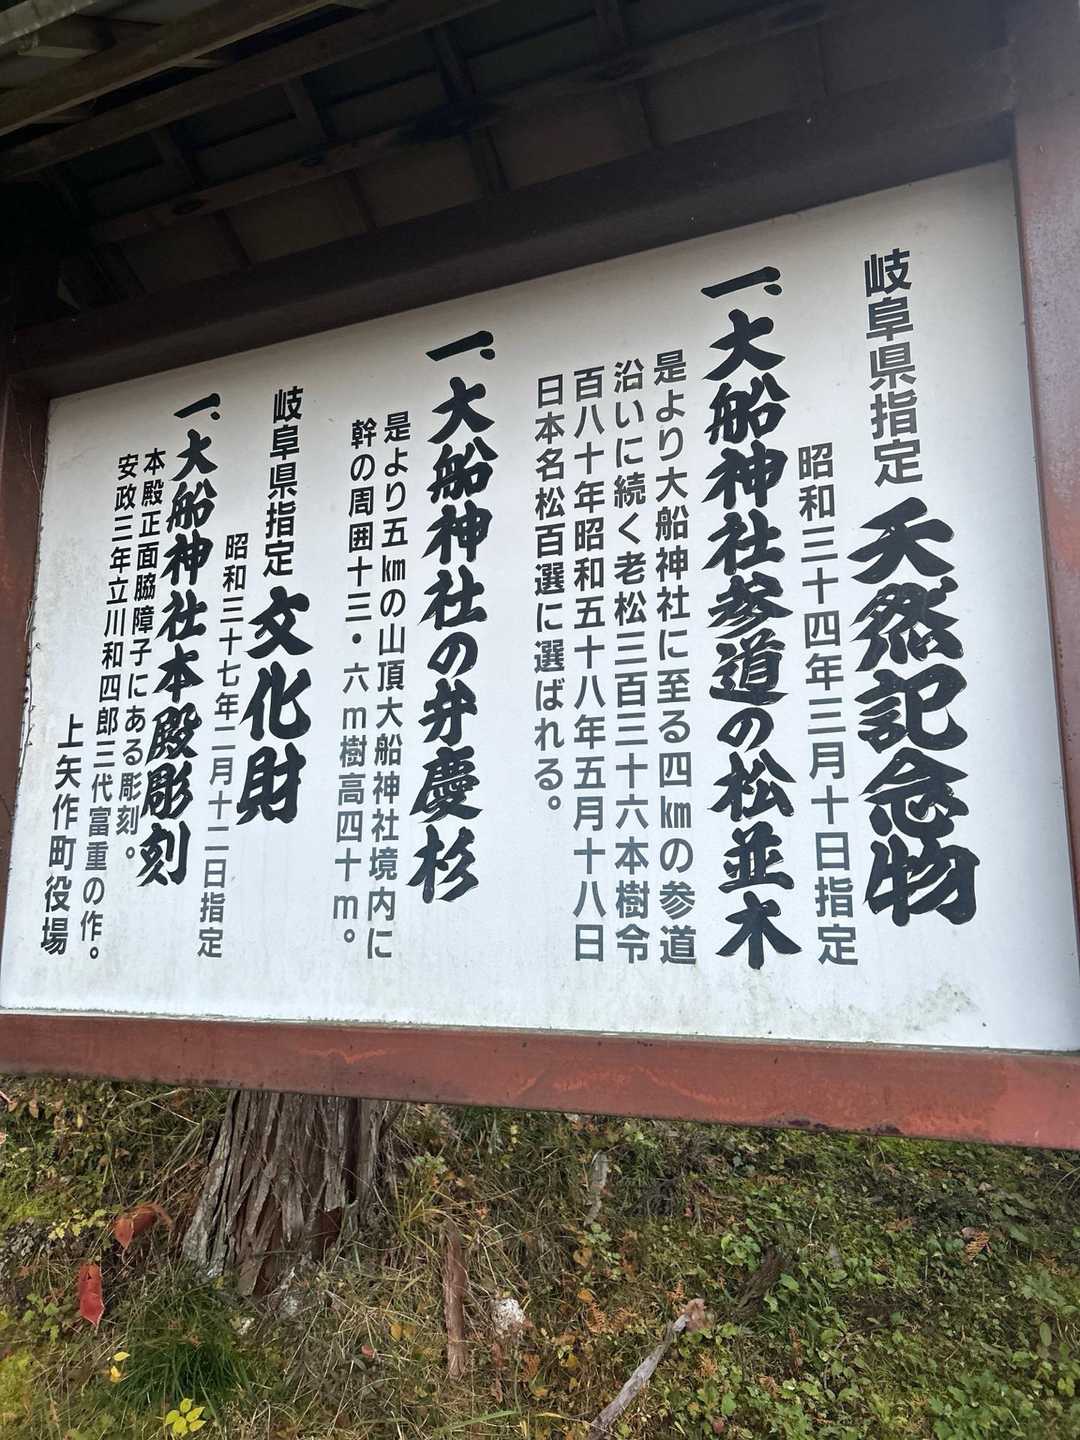 岐阜県指定 天然記念物
昭和三十四年三月十日指定
一、大船神社参道の松並木
是より大船神社に至る四㎞の参道
沿いに続く老松三百三十六本樹令
百八十年昭和五十八年五月十八日
日本名松百選に選ばれる。
一、大船神社の弁慶杉
是より五㎞の山頂大船神社境内に
幹の周囲十三・六m樹高四十m。
岐阜県指定 文化財
昭和三十七年二月十二日指定
一、大船神社本殿彫刻
本殿正面脇障子にある彫刻。
安政三年立川和四郎三代富重の作。
上矢作町役場